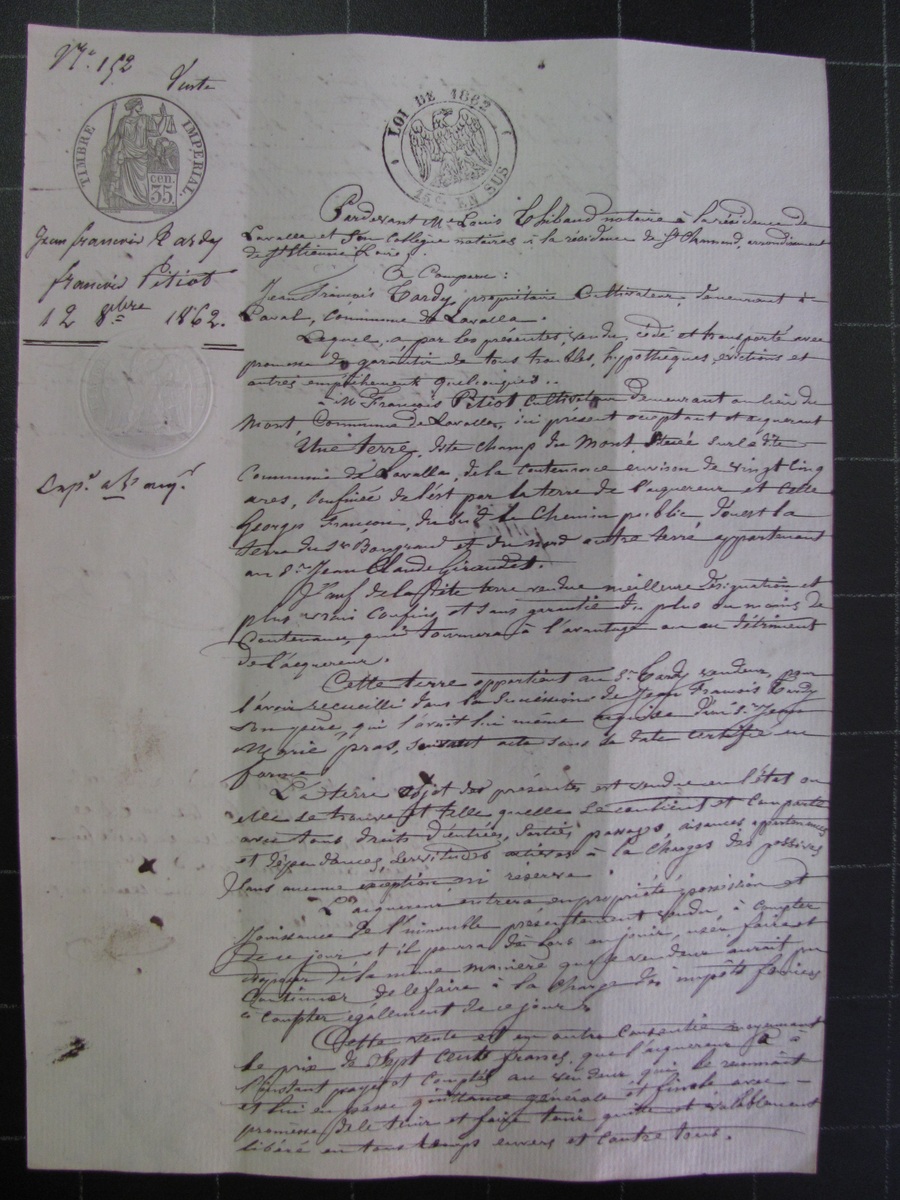 N.º 152
Vente
TIMBRE IMPERIAL
cen.
35
LOI DE 1862
EN SUS
Jean françois Tardy
françois Pitiot
12 8bre 1862.
Pardevant Me Louis Thibaud notaire à la résidence de
Lavalla et son collègue notaires à la résidence de St Chamond, arrondissement
de St Etienne (Loire).
A Comparu :
Jean François Tardy, propriétaire Cultivateur, demeurant à
Laval, Commune de Lavalla.
Lequel, a par les présentes, vendu, cédé et transporté avec
promesse de garantir de tous troubles, hypothèques, évictions et
autres empêchements quelconques..
à Mr François Pitiot Cultivateur demeurant au lieu du
Mont Commune de Lavalla, ici présent acceptant et acquérant
Une terre, dite Champ du Mont, Située sur la dite
Commune de Lavalla, de la contenance environ de vingt cinq
ares, Confinée de l'est par la terre de l'acquereur et celle
Georges François, du Sud le Chemin public, d'ouest la
terre du Sr et du Nord autre terre appartenant
au Sr Jean Claude Giraudet.
Sauf de la dite terre vendue meilleure désignation et
plus vrais confins, et sans garantie de plus ou moins de
Contenance, qui tournera à l'avantage ou au détriment
de l'acquereur.
Cette terre appartient au Sr Tardy vendeur, pour
l'avoir recueillie dans la succession de Jean François Tardy
Son père, qui l'avait lui même acquise d'un Sr Jean
Marie pras, suivant acte sans sa date certifié en
forme
La terre objet des présentes est vendue en l'état ou
elle se trouve et telle quelle Se contient et Comporte
avec tous droits d'entrées, sorties, passages, aisances appartenances
et dépendances, servitudes actives à la charges des passives
Sans aucune exception ni reserve.
L'acquereur entrera en propriété, possession et
Jouissance de l'immeuble présentement vendu, à compter
De ce jour et il pourra dès lors en jouir, user faire et
disposer de la même manière que le vendeur aurait pu
Continuer de le faire à la Charge des impôts fonciers
à compter également de ce jour.
Cette vente est en outre Consentie moyennant
le prix de Sept Cents francs, que l'acquereur a à
l'instant payé et compté au vendeur qui le reconnait
et lui en passe quittance générale et finale avec
promesse de le tenir et faire tenir quitte et valablement
libéré en tous temps envers et contre tous.